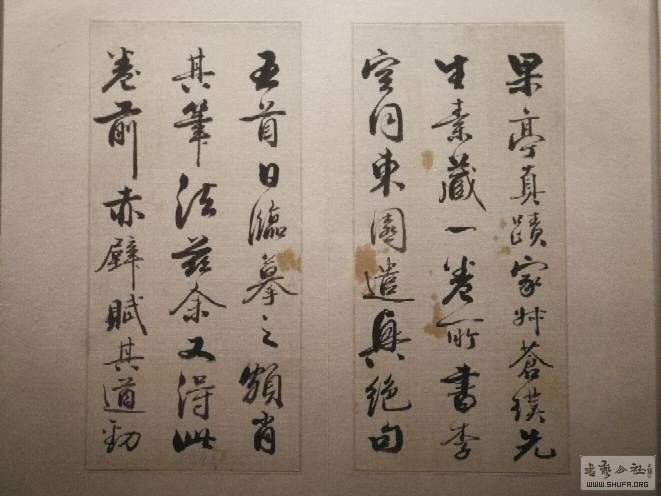 果亭真蹟家艸蒼璞先
生素藏一卷所書李
空同東園遣興絕句
五首日臨摹之頗肖
其筆法茲余又得此
卷前赤壁賦其遒勁
WWW.SHUFA.ORG